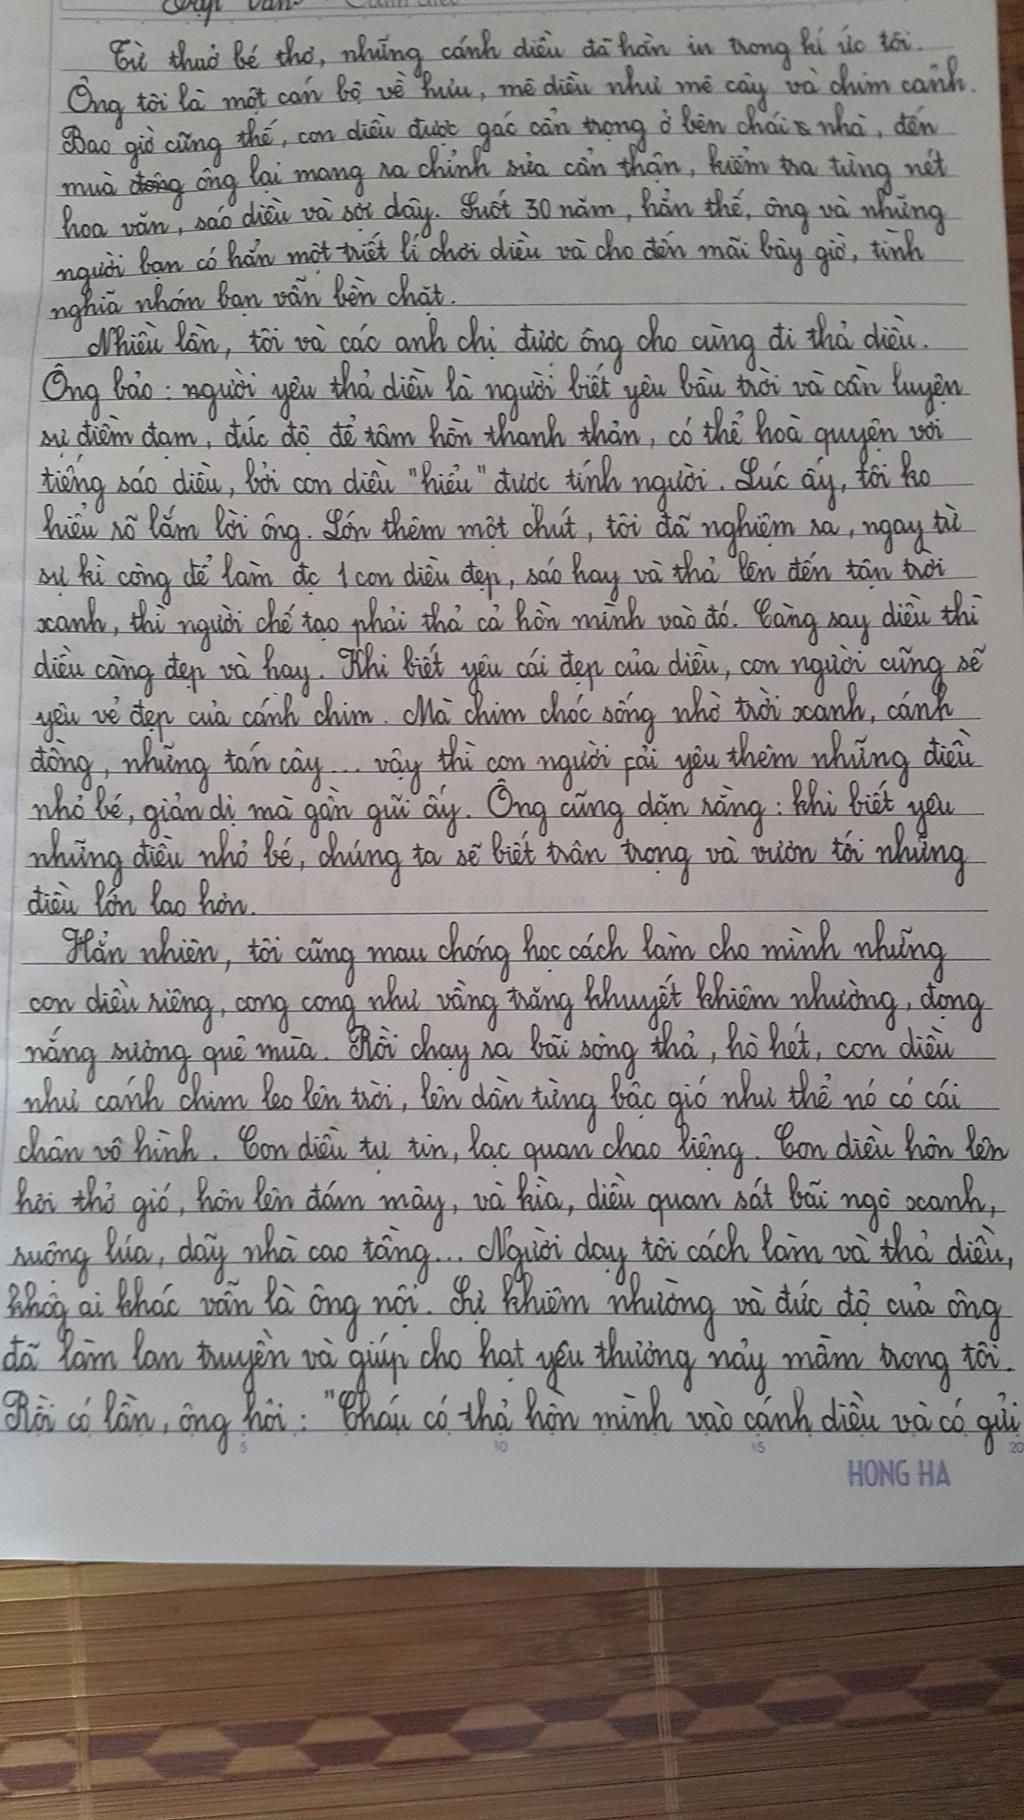 Từ thuở bé thơ, những cánh diều đã hằn in trong kí ức tôi.
Ông tôi là một cán bộ về hưu, mê diều như mê cây và chim cảnh.
Bao giờ cũng thế, con diều được gác cẩn trọng ở bên chái nhà, đến
mùa ông lại mang ra chỉnh sửa cẩn thận, kiểm tra từng nét
hoa văn, sáo diều và sợi dây. Suốt 30 năm, hẳn thế, ông và những
người bạn có hẳn một triết lí chơi diều và cho đến mãi bây giờ, tình
nghĩa nhóm bạn vẫn bền chặt.
Nhiều lần, tôi và các anh chị được ông cho cùng đi thả diều.
Ông bảo: người yêu thả diều là người biết yêu bầu trời và cần luyện
sự điềm đạm, đức độ để tâm hồn thanh thản, có thể hoà quyện với
tiếng sáo diều, bởi con diều "hiểu" được tính người. Lúc ấy, tôi ko
hiểu rõ lắm lời ông. Lớn thêm một chút, tôi đã nghiệm ra, ngay từ
sự kì công để làm đc 1 con diều đẹp, sáo hay và thả lên đến tận trời
xanh, thì người chế tạo phải thả cả hồn mình vào đó. Càng say diều thì
diều càng đẹp và hay. Khi biết yêu cái đẹp của diều, con người cũng sẽ
yêu vẻ đẹp của cánh chim. Mà chim chóc sống nhờ trời xanh, cánh
đồng, những tán cây... vậy thì con người fải yêu thêm những điều
nhỏ bé, giản dị mà gần gũi ấy. Ông cũng dặn rằng: khi biết yêu
những điều nhỏ bé, chúng ta sẽ biết trân trọng và vươn tới những
điều lớn lao hơn.
Hẳn nhiên, tôi cũng mau chóng học cách làm cho mình những
con diều riêng, cong cong như vầng trăng khuyết khiêm nhường, đọng
nắng sương quê mùa. Rồi chạy ra bãi sông thả, hò hét, con diều
như cánh chim leo lên trời, lên dần từng bậc gió như thể nó có cái
chân vô hình. Con diều tự tin, lạc quan chao liệng. Con diều hôn lên
hơi thở gió, hôn lên đám mây, và kìa, diều quan sát bãi ngô xanh,
ruộng lúa, dãy nhà cao tầng... Người dạy tôi cách làm và thả diều,
khôg ai khác vẫn là ông nội. Sự khiêm nhường và đức độ của ông
đã làm lan truyền và giúp cho hạt yêu thương nảy mầm trong tôi.
Rồi có lần, ông hỏi: "Cháu có thả hồn mình vào cánh diều và có gửi
5 10 15 20
HONG HA